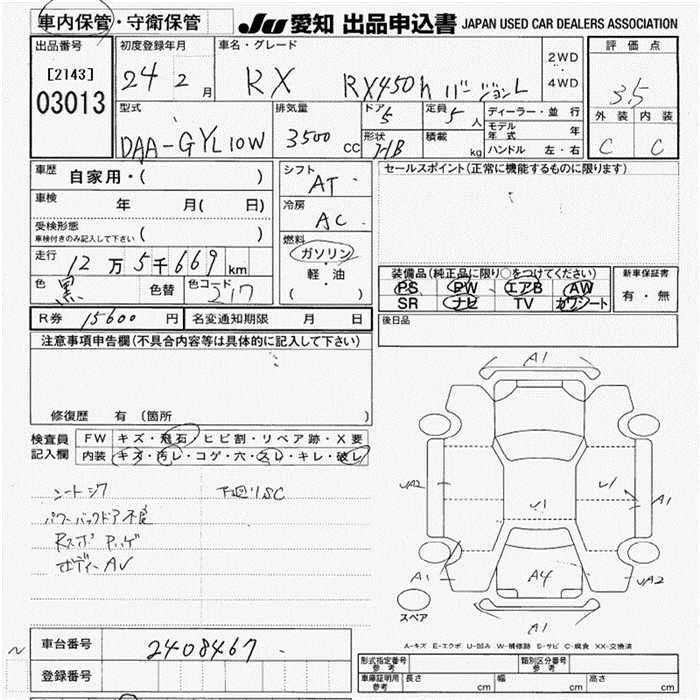 車内保管・守衛保管 JU 愛知 出品申込書 JAPAN USED CAR DEALERS ASSOCIATION
出品番号 初度登録年月 車名・グレード 2WD 評価点
[2143] 24 2月 RX RX450h バージョンL ・ 3.5
03013 4WD 外装 内装
型式 排気量 ドア 5 定員 5人 ディーラー・並行 C C
DAA-GYL10W 3500cc 形状 H/B 積載 kg モデル年式 年
ハンドル 左・右
車歴 自家用・( ) シフト AT セールスポイント(正常に機能するものに限ります)
車検 年 月( 日) 冷房 AC
受検形態
車検付きのみ記入して下さい ( ) 燃料
走行 12万5千669km ガソリン 装備品(純正品に限り○をつけてください) 新車保証書
色 黒 色替 色コード 217 軽・油 PS PW エアB AW 有・無
( ) SR ナビ TV カワシート
R券 15600円 名変通知期限 月 日 後日品
注意事項申告欄(不具合内容等は具体的に記入して下さい)
修復歴 有(箇所 )
検査員 FW キズ・飛石・ヒビ割・リペア跡・X要
記入欄 内装 キズ・汚レ・コゲ・穴・スレ・キレ・破レ
シートシワ 下廻りSC
パワーバックドア不良
Rスポ Pハゲ
ボディーAV
A1
A2 U1 U1 A1
A1 A4 A2
スペア A1
A-キズ E-エクボ U-凹み W-補修跡 S-サビ C-腐食 XX-交換済
車台番号 2408467
登録番号
型式指定番号 参考 類別区分番号 参考
車庫証明用 参考 長さ cm 幅 cm 高さ cm